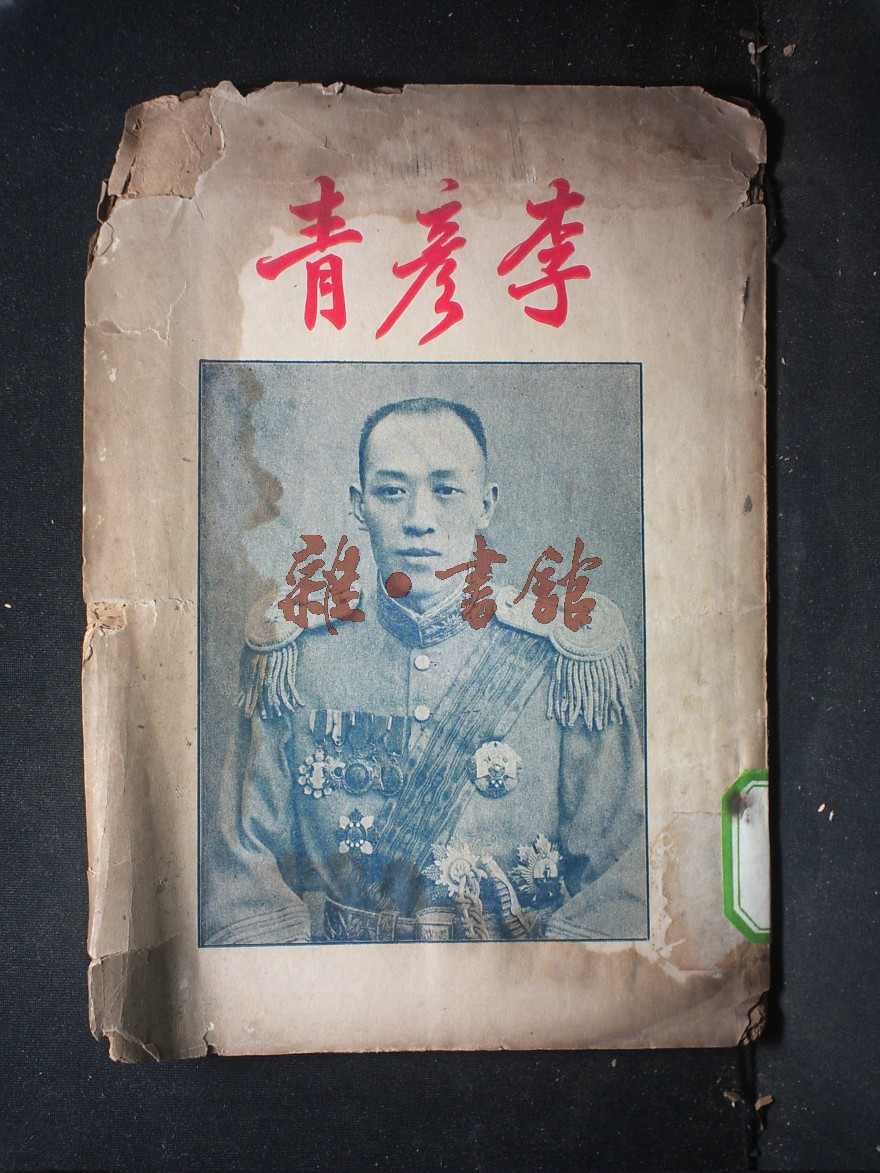 李彦青
雜·書館